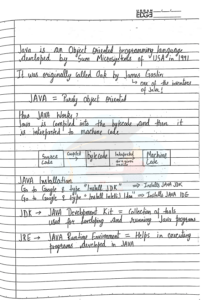 Java is an Object Oriented programming language
developed by Sun Microsystems of USA in 1991
It was originally called Oak by James Goslin
→ one of the inventors
of Java!
JAVA = Purely Object oriented
How JAVA Works?
Java is compiled into the bytecode and then it
is interpreted to machine code
Source Code
Compiled
bytecode
Interpreted
Machine Code
JAVA Installation
Go to Google & type "Install JDK" ⇒ Installs JAVA JDK
Go to Google & type "Install Intellij Idea" ⇒ Installs JAVA IDE
JDK → JAVA Development Kit = Collection of tools
used for developing and running Java programs
JRE → JAVA Runtime Environment = Helps in executing
programs developed in JAVA